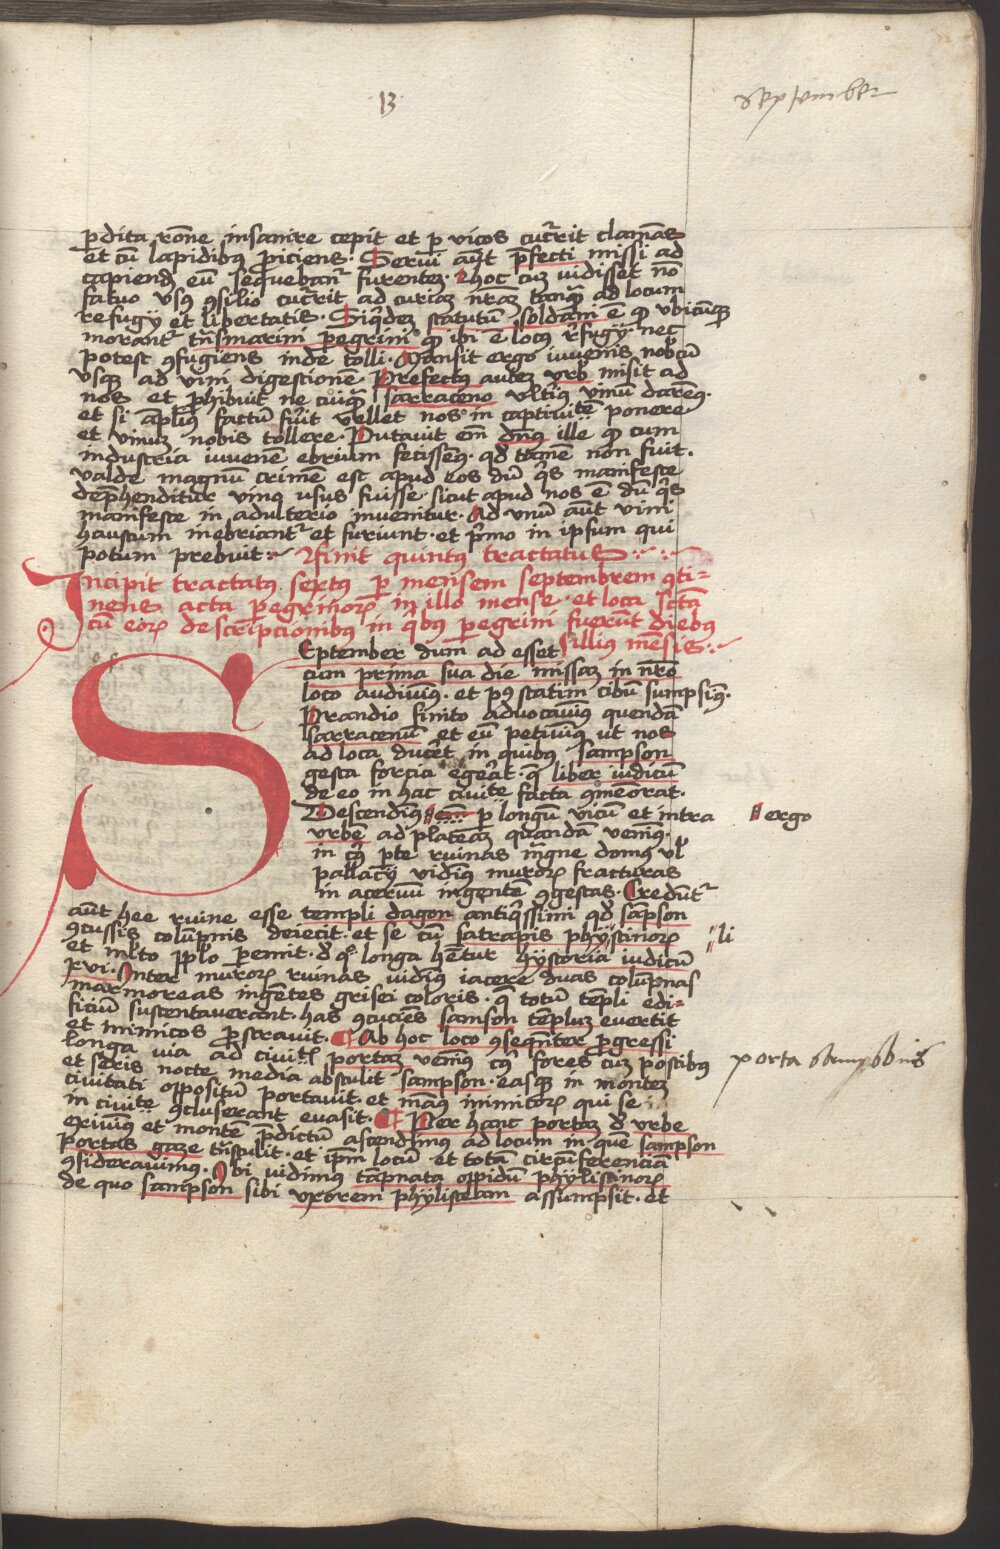 13
september
p̱dita rōne insanire cepit et p̱ vicos cuc̄rit clamās
et cū lapidibus p̱iciens · Servi aūt p̄fecti missi ad
capiend eū sequebanͭ furentez · hoc cuz vidisset nō
fatuo vsꝰ ꝯsilio cuc̄rit ad curiaz nr̄az tanqͣ ad locum
refugij et libertatis · Siqͥdez statutū soldani ē qͩ vbicūqꝫ
morantͬ trͣnsmarini pegrini qͩ ibi ē locꝰ rͤfugij nec
potest ꝯfugiens inde tolli · Mansit ergo iuvenis nobͨcū
vsqꝫ ad vini digestionē · Prefectꝰ autez vrbͥ misit ad
nos et phibuit ne cuiqͣ sarraceno vltͥꝰ vinū daremꝰ
et si āpliꝰ factū fuͥit vellet nos in captivitͣte ponere
et vinuz nobis tollere · Putavit em̄ dn̄ꝰ ille qͩ cum
industria iuvenē ebrium fecissemꝰ · qd̄ tamē non fuit ·
valde magnū crimē est apud eos dū qͥs manifeste
dep̄henditur vinꝰ usus fuisse · sicut apud nos ē dū qͥs
manifeste in adulterio invenitur · Ad vnū aūt vini
haustum inebriantͬ et furiunt · et pͥmo in ipsum qui
potum prebuit · finit quintꝰ tractatus
Incipit tractatꝰ sextꝰ p̱ mensem septembrem ꝯti=
nens acta p̱egrinorꝝ in illo mense · et loca sctā
cū eorꝝ descripcionibꝰ in qͥbꝰ p̱egrini fuerūt diebꝰ
illius mēsis
SEptember dum ad esset
cum prima sua die missaz in nr̄o
loco audivimꝰ · et pꝰ statim cibū sumpsimꝰ ·
Prandio finito advocavimꝰ quendā
sarracenum et eū petivimꝰ ut nos
ad loca ducēt in quibus sampson
gesta forcia egerͣt · qͤ liber iudicū
de eo in hac civitͣte facta ꝯmēorat ·
Descendimꝰ em̄ p̱ longū vicū et intra
ergo
vrbē ad plateaz quandā venimꝰ ·
in cꝰ pͣte ruinas māgne domꝰ vl̄
pallacij vidimꝰ murorꝝ fracturas
in acervū ingentē ꝯgestas · Credūtͬ
aūt hee ruine esse templi dagon antiqͥssimi qd̄ sāpson
ꝯcussis colūpnis deiecit · et se cū satrapis phistinorꝝ
li
et ml̄to ppl̄o pemit · d̄ qͦ longa hētur hystoria iudicū
xvi · Inter murorꝝ ruinas vidimꝰ iacere duas colūpnas
marmoreas ingētes grisei coloris · qͤ totū tēpli edi=
ficiū sustentaverant · has ꝯcuciēs samson tēpluz evertit
et inimicos pstravit · Ab hoc loco ꝯseqn̄ter p̱gressi
longa via ad civitͣt portaz venimꝰ cꝰ fores cuz postibus
et seris nocte media abstulit sampson · easqꝫ in montez
civitati oppositū portavit · et manꝰ inimicorꝝ qui se
porta sampsonis
in civitͣte ꝯcluserant evasit · Per hanc portaz d̄ urbe
exivimꝰ et montē p̄dictū ascendimus ad locum in quē sampson
portas gaze trͣnstulit · et ip̄m locū et totā circūferenciā
ꝯsideravimus · Ibi vidimus tāpnata oppidū phylistinorꝝ
de quo sampson sibi vxorem phylisteam assumpsit · et